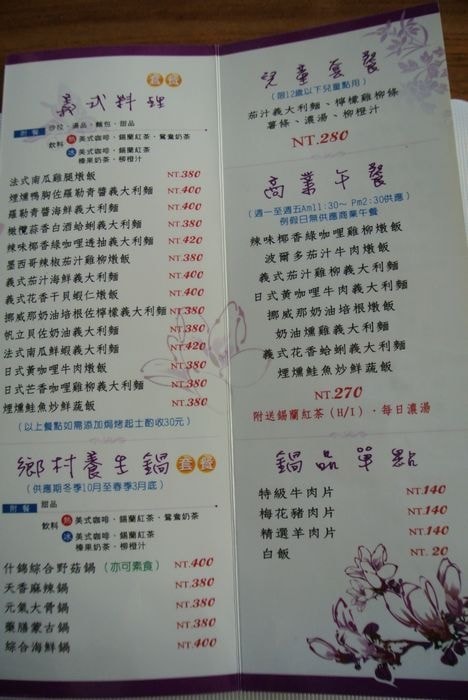 義式料理 套餐
附餐 沙拉、湯品、麵包、甜品
飲料 熱 美式咖啡、錫蘭紅茶、鴛鴦奶茶
冰 美式咖啡、錫蘭紅茶
榛果奶茶、柳橙汁
法式南瓜雞腿燉飯 NT.380
煙燻鴨胸佐羅勒青醬義大利麵 NT.400
羅勒青醬海鮮義大利麵 NT.400
橄欖蒜香白酒蛤蜊義大利麵 NT.380
辣味椰香綠咖哩透抽義大利麵 NT.420
墨西哥辣椒茄汁雞柳燉飯 NT.380
義式茄汁海鮮義大利麵 NT.400
義式花香干貝蝦仁燉飯 NT.400
挪威那奶油培根佐檸檬義大利麵 NT.380
帆立貝佐奶油義大利麵 NT.380
法式南瓜鮮蝦義大利麵 NT.420
日式黃咖哩牛肉燉飯 NT.380
日式芒香咖哩雞柳義大利麵 NT.380
煙燻鮭魚炒鮮蔬飯 NT.380
(以上餐點如需添加焗烤起士酌收30元)
鄉村養生鍋 套餐
(供應期冬季10月至春季3月底)
附餐 甜品
飲料 熱 美式咖啡、錫蘭紅茶、鴛鴦奶茶
冰 美式咖啡、錫蘭紅茶
榛果奶茶、柳橙汁
什錦綜合野菇鍋 (亦可素食) NT.400
天香麻辣鍋 NT.380
元氣大骨鍋 NT.380
藥膳蒙古鍋 NT.380
綜合海鮮鍋 NT.400
兒童套餐
(限12歲以下兒童點用)
茄汁義大利麵、檸檬雞柳條
薯條、濃湯、柳橙汁
NT.280
商業午餐
(週一至週五Am11:30~ Pm2:30供應)
例假日無供應商業午餐
辣味椰香綠咖哩雞柳燉飯
波爾多茄汁牛肉燉飯
義式茄汁雞柳義大利麵
日式黃咖哩牛肉義大利麵
挪威那奶油培根燉飯
奶油燻雞義大利麵
義式花香蛤蜊義大利麵
煙燻鮭魚炒鮮蔬飯
NT.270
附送錫蘭紅茶(H/I)‧每日濃湯
鍋品單點
特級牛肉片 NT.140
梅花豬肉片 NT.140
精選羊肉片 NT.140
白飯 NT. 20